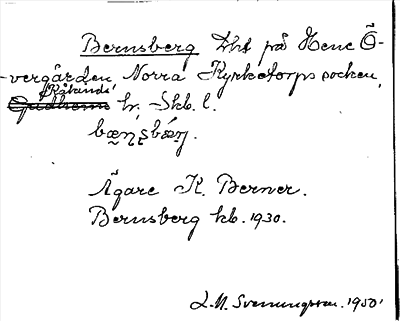 Bernsberg Lht på Hene Ö-
vergården, Norra Kyrketorps socken,
Kåkinds
Gudhems hr. Skb. l.
bæ̀ɳʂbæ̀rj.
Ägare K. Berner.
Bernsberg kb. 1930.
L.M. Svenungsson. 1950.